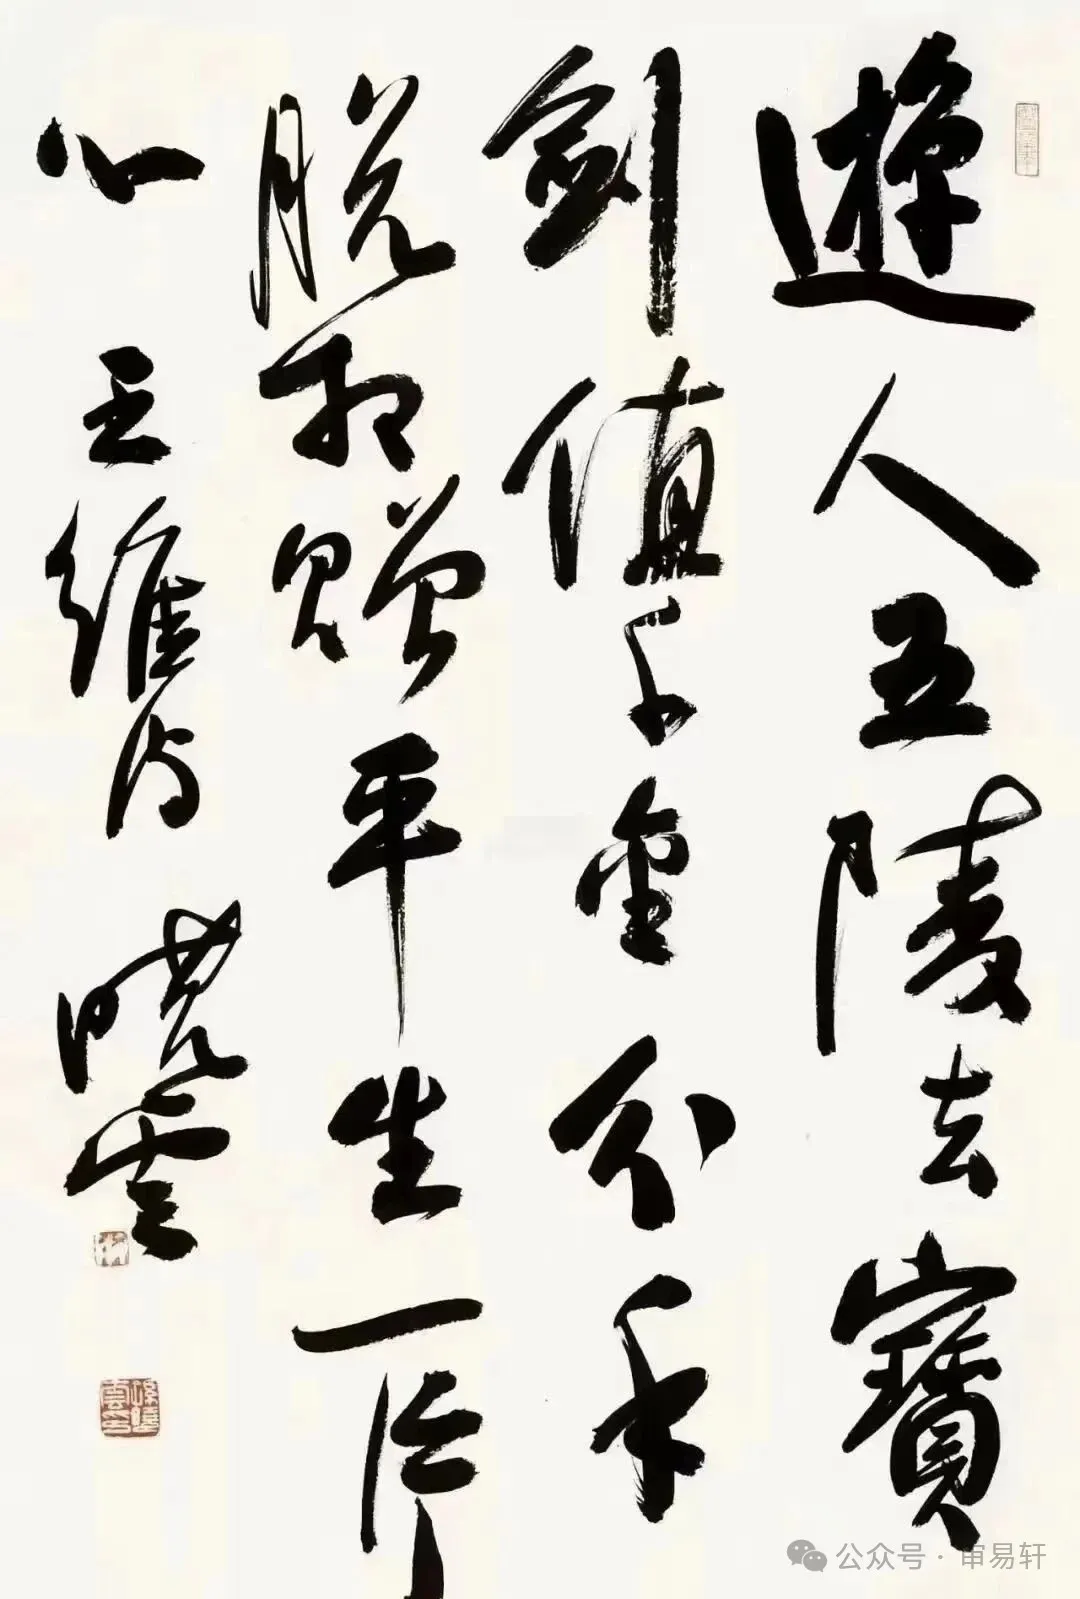 遊人五陵去寶
劍值千金分手
脫相贈平生一片
心 王維诗 曉雲
公众号 · 审易轩